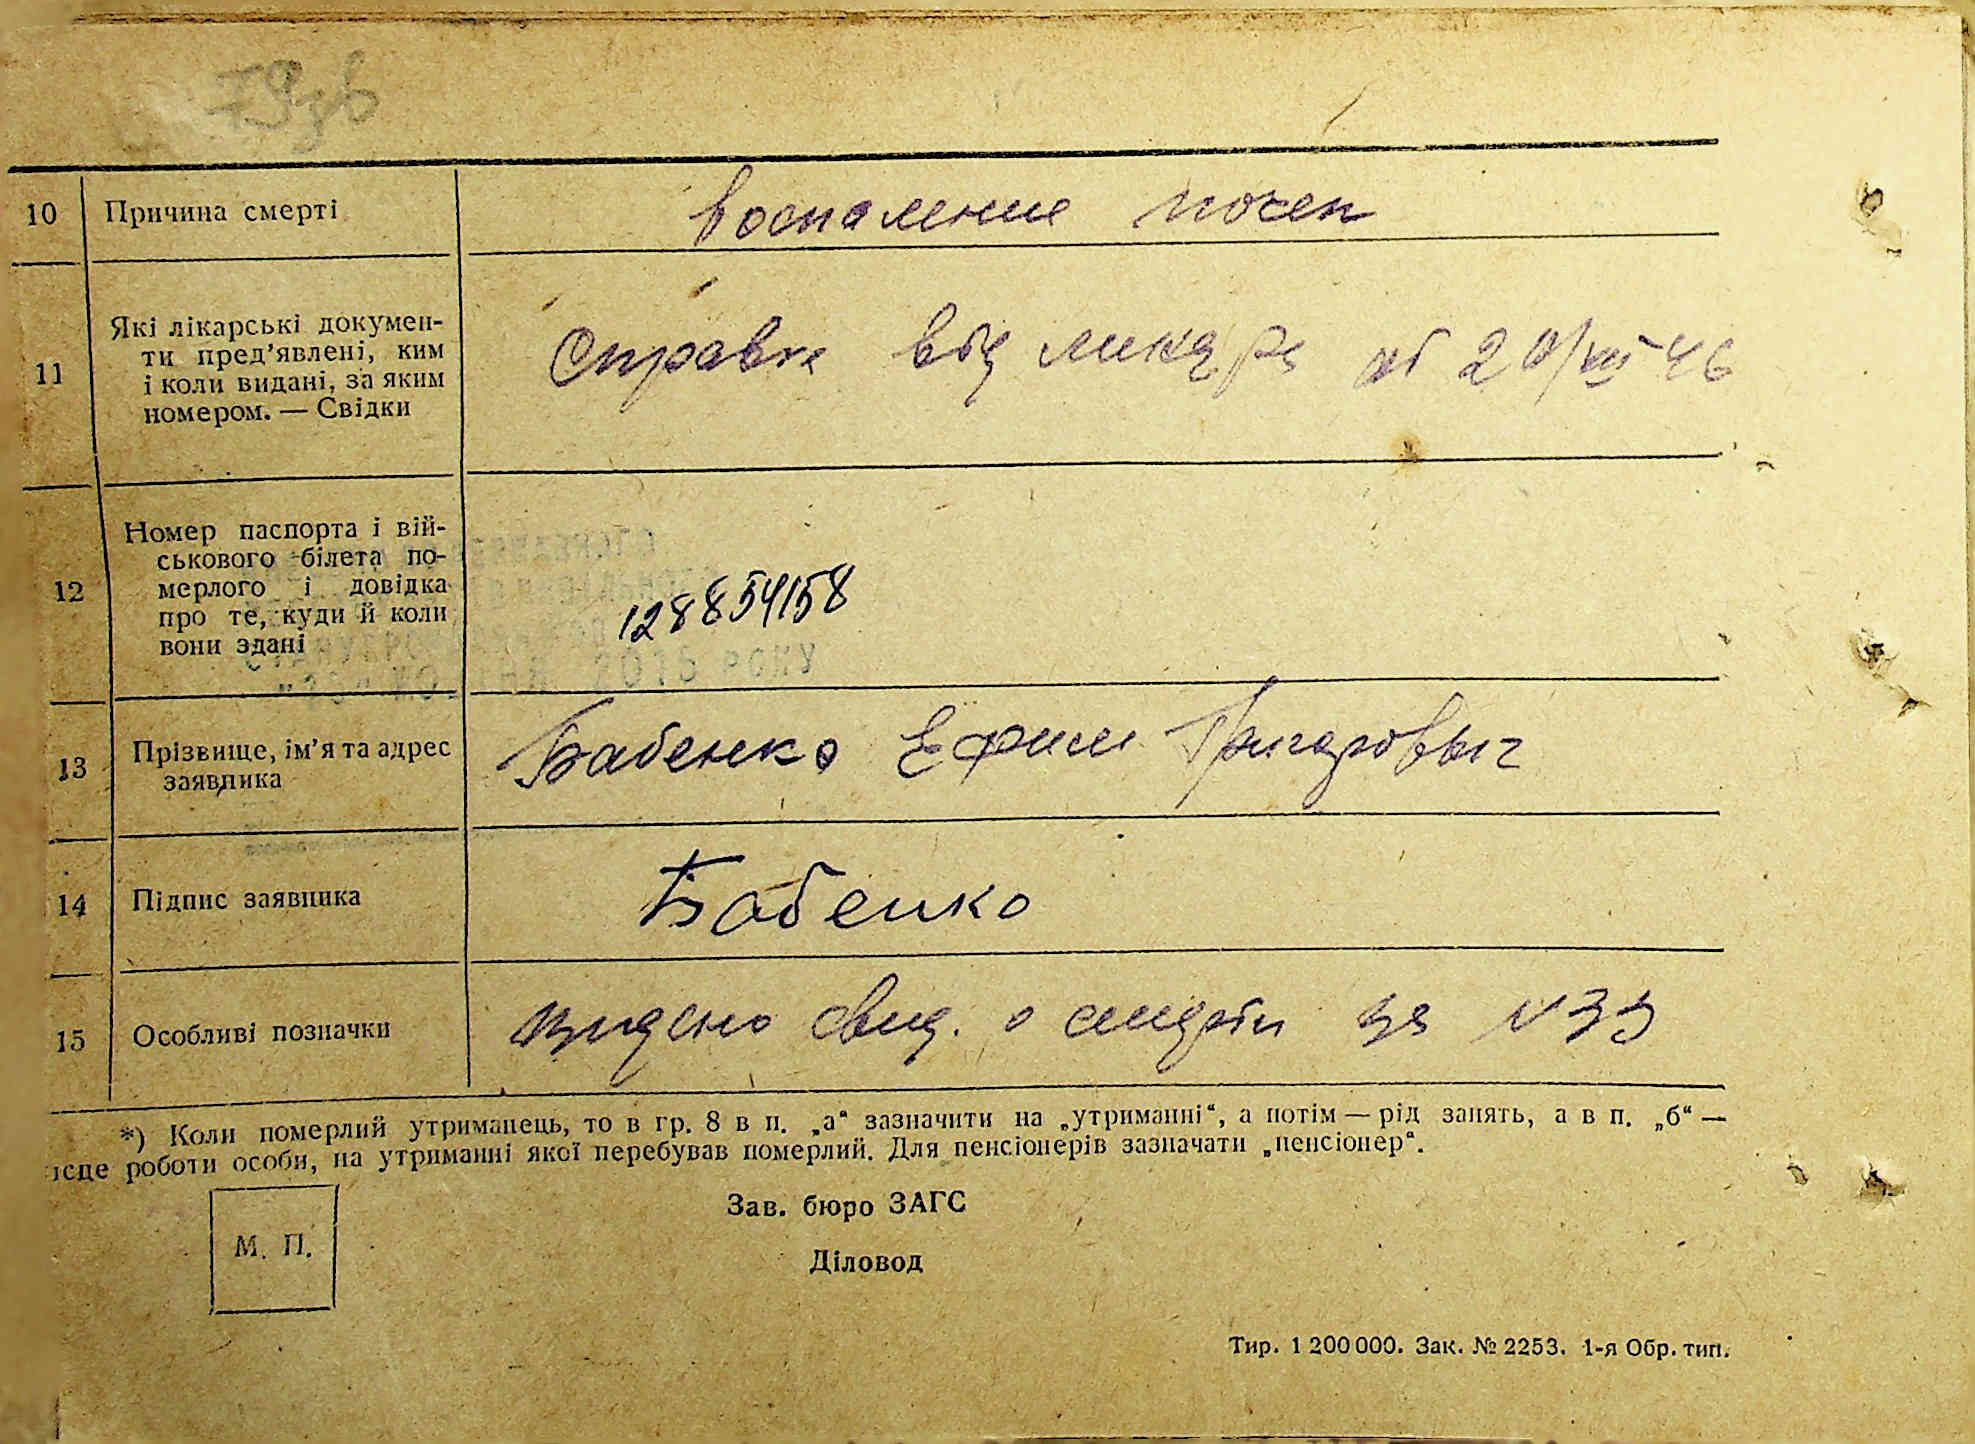 79зв
10 Причина смерті воспаление почек
11 Які лікарські докумен-
ти пред’явлені, ким
і коли видані, за яким
номером. — Свідки
Справка від ликаря от 20/VII 46
12 Номер паспорта і вій-
ськового білета по-
мерлого і довідка
про те, куди й коли
вони здані
128854158
2015 РОКУ
13 Прізвище, ім’я та адрес
заявника
Бабенко Ефим Григоровыч
14 Підпис заявника Бабенко
15 Особливі позначки выдено свид. о смерти за N 33
*) Коли померлий утриманець, то в гр. 8 в п. „а“ зазначити на „утриманні“, а потім — рід занять, а в п. „б“ —
ісце роботи особи, на утриманні якої перебував померлий. Для пенсіонерів зазначати „пенсіонер“.
М. П.
Зав. бюро ЗАГС
Діловод
Тир. 1 200 000. Зак. № 2253. 1-я Обр. тип.